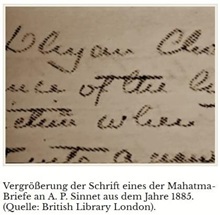 Dhyan Cho
nce of the
when
Vergrößerung der Schrift eines der Mahatma-
Briefe an A. P. Sinnet aus dem Jahre 1885.
(Quelle: British Library London).